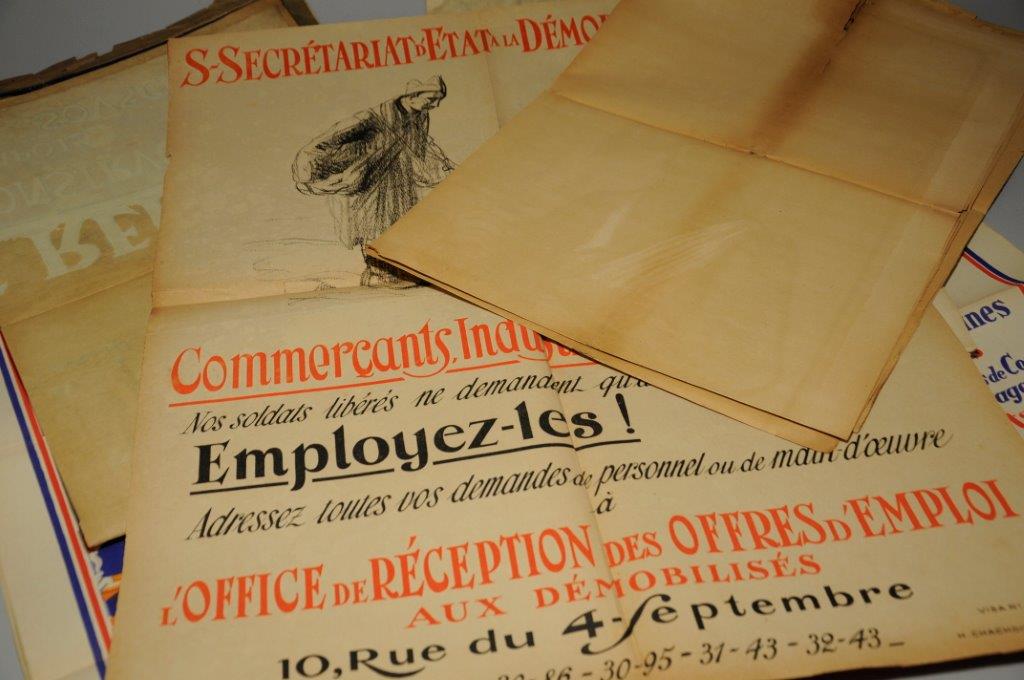 S-SECRÉTARIAT D'ETAT A LA DÉMO
Commerçants, Indus
Nos soldats libérés ne demandent qu'a
Employez-les !
Adressez toutes vos demandes de personnel ou de main-d'œuvre
à
L'OFFICE DE RÉCEPTION DES OFFRES D'EMPLOI
AUX DÉMOBILISÉS
10, Rue du 4-Septembre
86 - 30-95 - 31-43 - 32-43
VISA Nº
H. CHACHOIN
RE
nnes
de Co